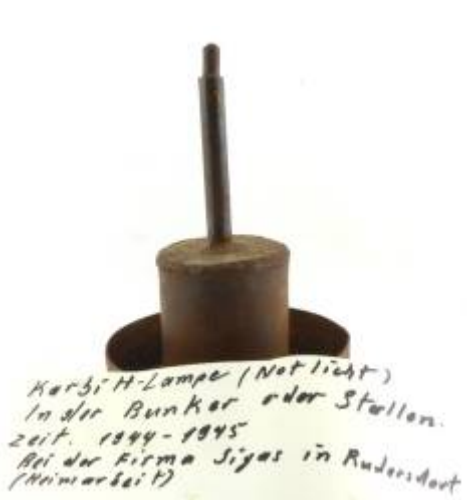 Karbitt-Lampe (Notlicht)
In der Bunker oder Stollen.
Zeit. 1944-1945
Bei der Firma Sigas in Rudersdorf
(Heimarbeit)